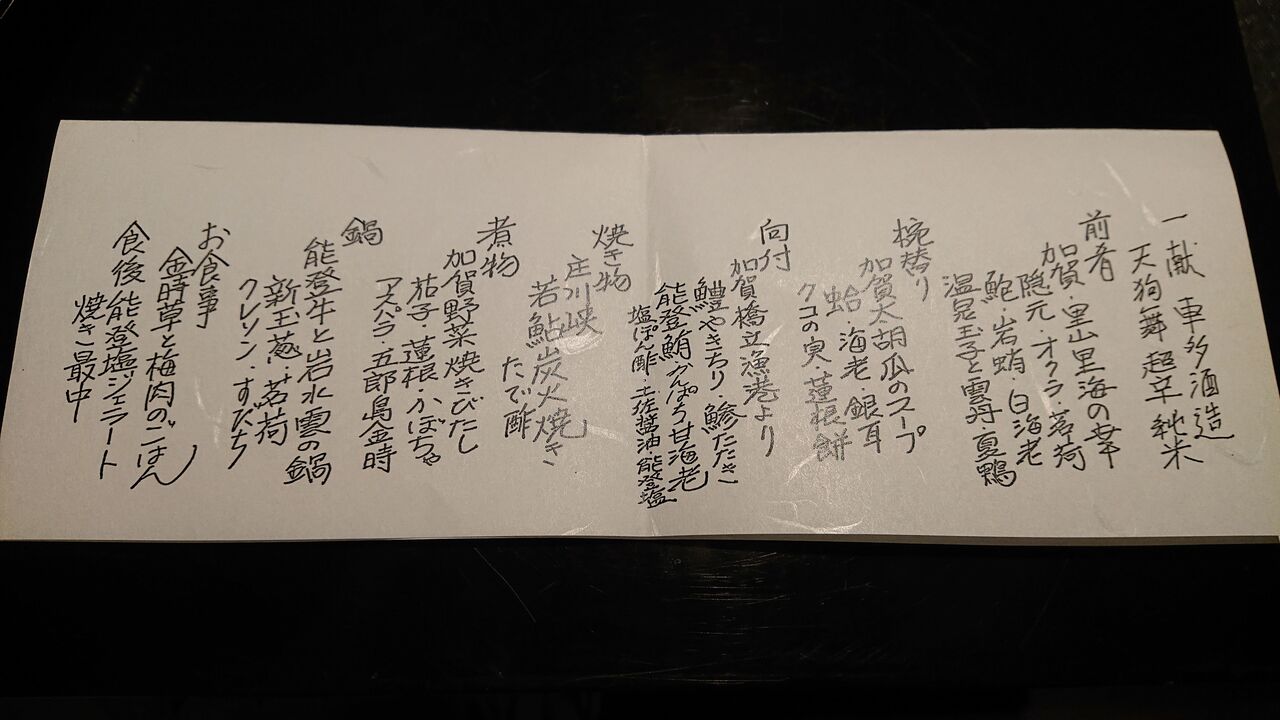 一献 車多酒造
天狗舞 超辛純米
前肴
加賀・里山里海の幸
隠元・オクラ・茗荷
鮑・岩蛸・白海老
温泉玉子と雲丹・夏鴨
椀替り
加賀太胡瓜のスープ
蛤・海老・銀耳
クコの実・蓮根餅
向付
加賀橋立漁港より
鱧やきちり・鯵たたき
能登鮪・かんぱち・甘海老
塩ぽん酢・土佐醤油・能登塩
焼き物
庄川峡
若鮎炭火焼き
たで酢
煮物
加賀野菜焼きびたし
茄子・蓮根・かぼちゃ
アスパラ・五郎島金時
鍋
能登牛と岩水雲の鍋
新玉葱・茗荷
クレソン・すだち
お食事
金時草と梅肉のごはん
食後 能登塩ジェラート
焼き最中